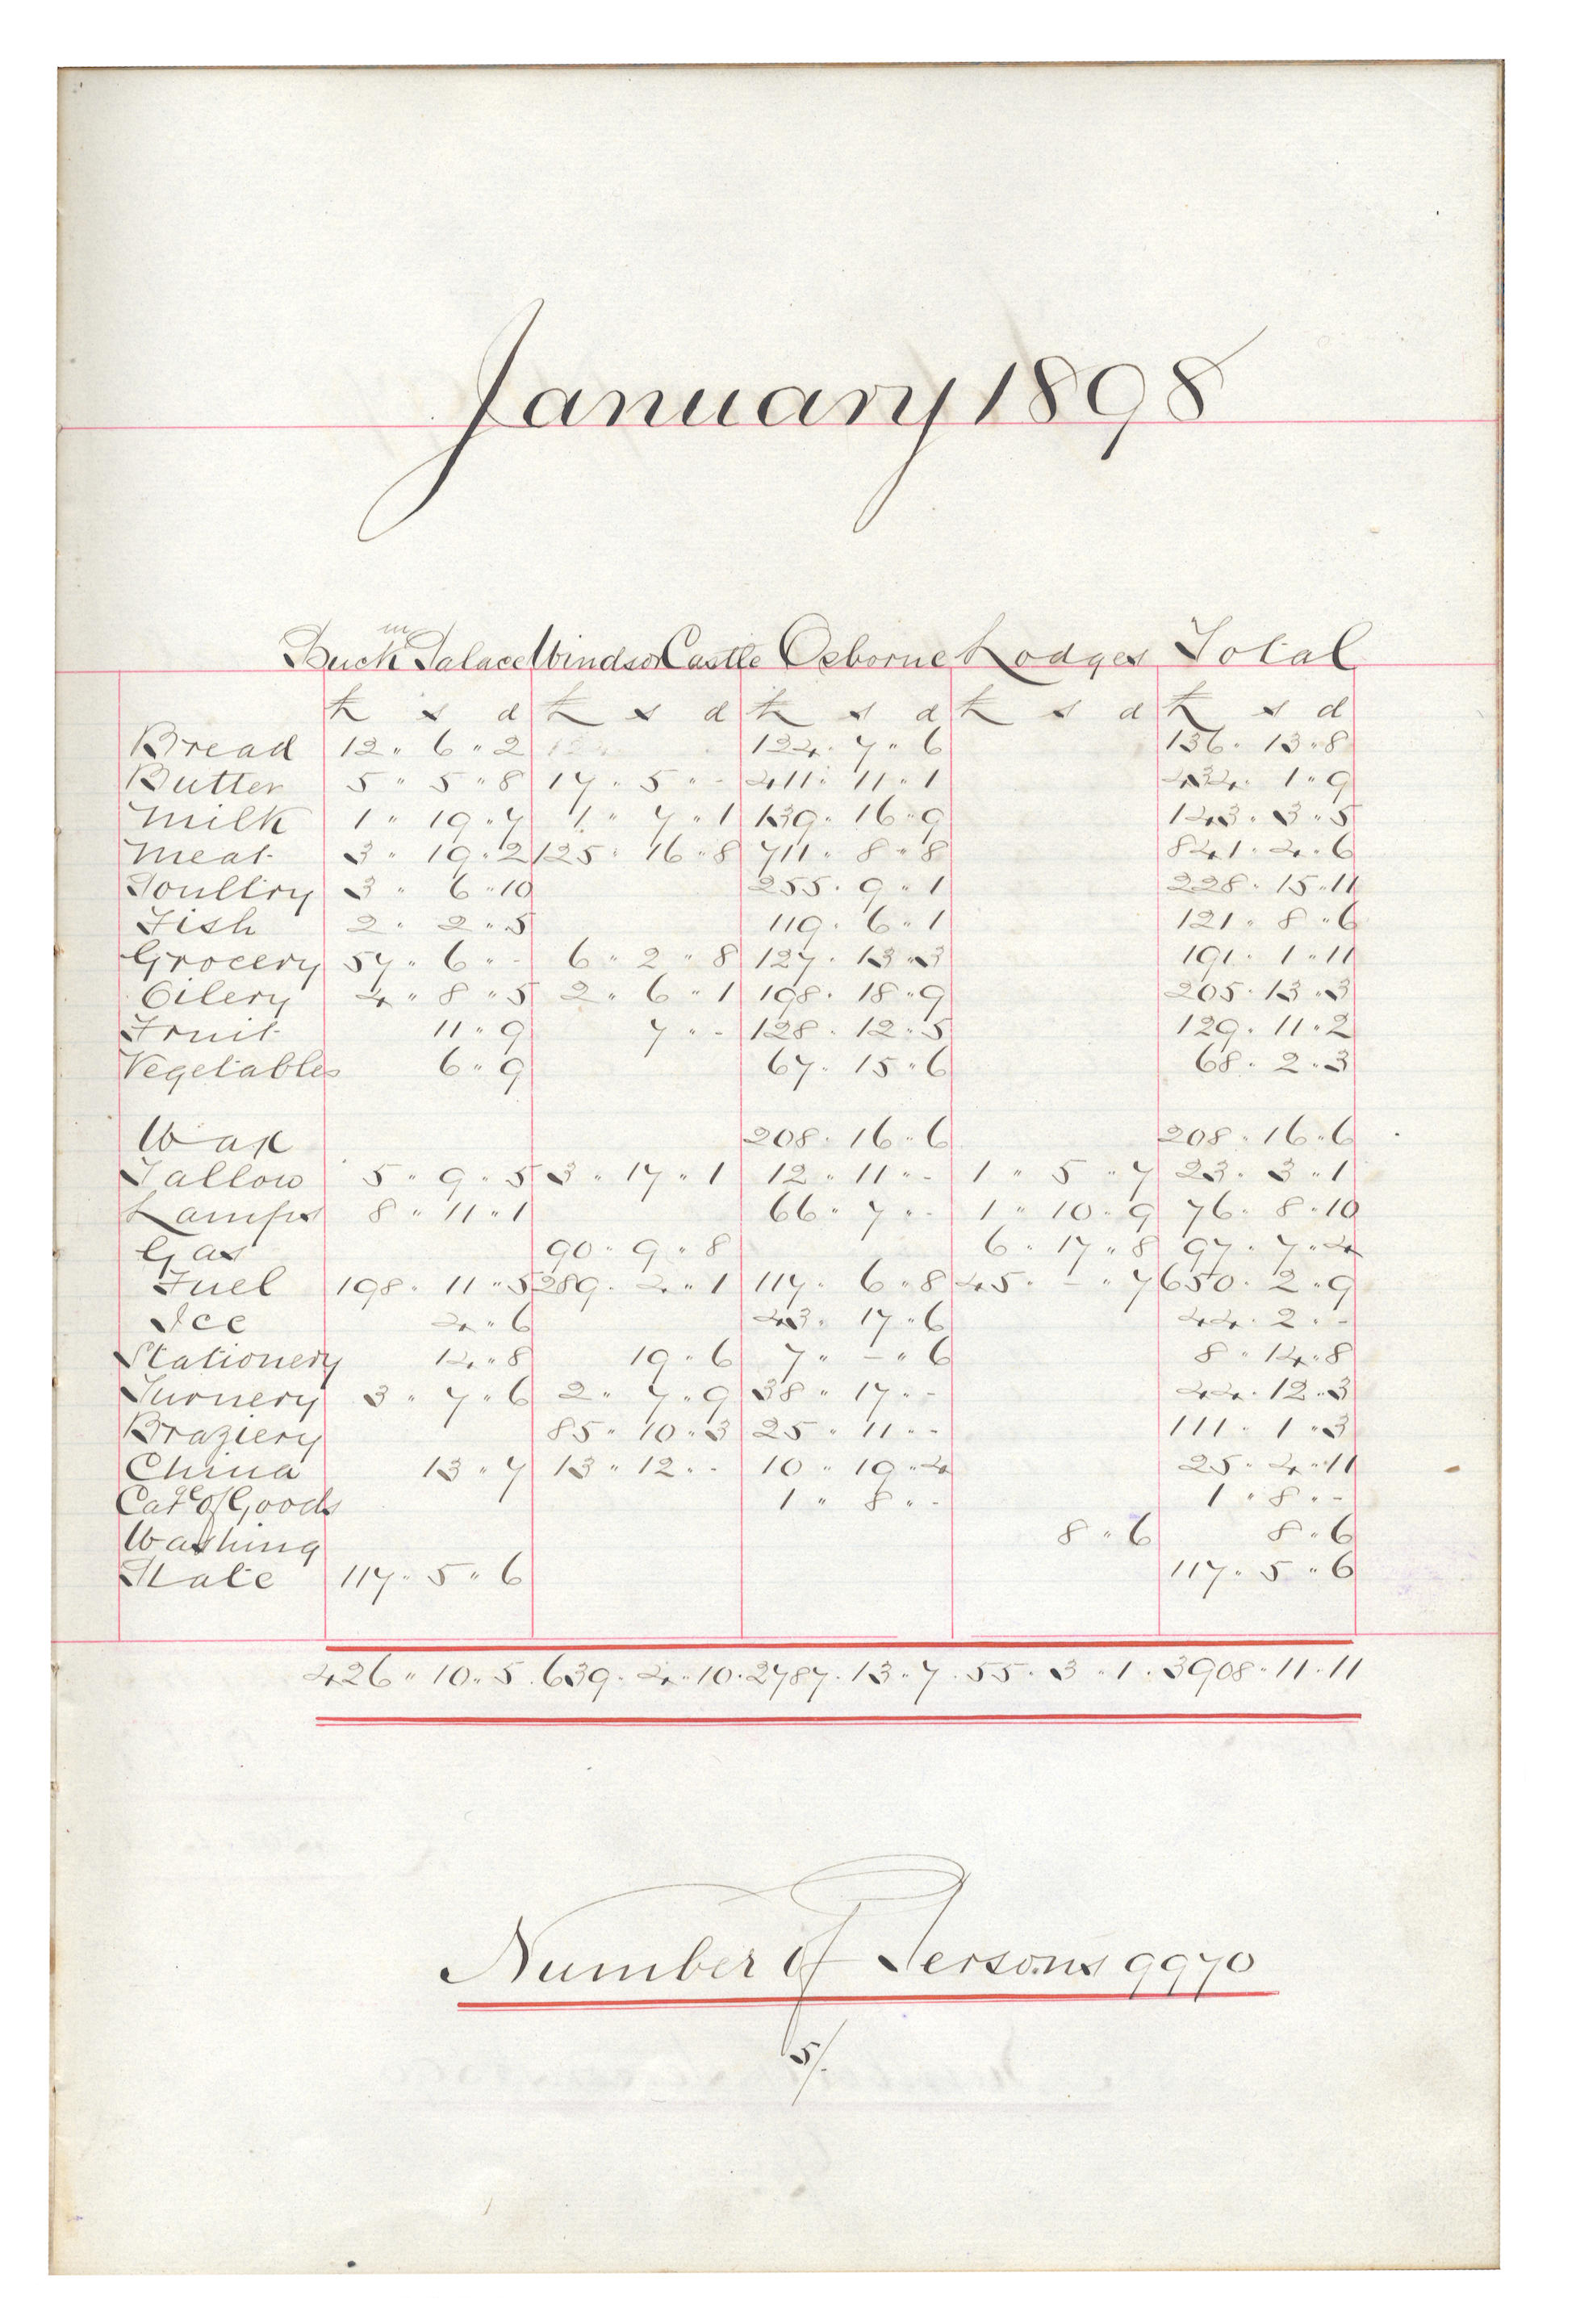 January 1898
Buckm Palace Windsor Castle Osborne Lodges Total
£ s d £ s d £ s d £ s d £ s d
Bread 12 " 6 " 2 124 " 7 " 6 136 " 13 " 8
Butter 5 " 5 " 8 17 " 5 " - 411 " 11 " 1 434 " 1 " 9
Milk 1 " 19 " 7 1 " 7 " 1 139 " 16 " 9 143 " 3 " 5
Meat 3 " 19 " 2 125 " 16 " 8 711 " 8 " 8 841 " 4 " 6
Poultry 3 " 6 " 10 225 " 9 " 1 228 " 15 " 11
Fish 2 " 2 " 5 119 " 6 " 1 121 " 8 " 6
Grocery 57 " 6 " - 6 " 2 " 8 127 " 13 " 3 191 " 1 " 11
Oilery 4 " 8 " 5 2 " 6 " 1 198 " 18 " 9 205 " 13 " 3
Fruit 11 " 9 7 " - 128 " 12 " 5 129 " 11 " 2
Vegetables 6 " 9 67 " 15 " 6 68 " 2 " 3
Wax 208 " 16 " 6 208 " 16 " 6
Tallow 5 " 9 " 5 3 " 17 " 1 12 " 11 " - 1 " 5 " 7 23 " 3 " 1
Lamps 8 " 11 " 1 66 " 7 " - 1 " 10 " 9 76 " 8 " 10
Gas 90 " 9 " 8 6 " 17 " 8 97 " 7 " 4
Fuel 198 " 11 " 5 289 " 4 " 1 117 " 6 " 8 45 " - " 7 650 " 2 " 9
Ice 4 " 6 43 " 17 " 6 44 " 2 " -
Stationery 14 " 8 19 " 6 7 " - " 6 8 " 14 " 8
Turnery 3 " 7 " 6 2 " 7 " 9 38 " 17 " - 44 " 12 " 3
Braziery 85 " 10 " 3 25 " 11 " - 111 " 1 " 3
China 13 " 7 13 " 12 " - 10 " 19 " 4 25 " 4 " 11
Carge of Goods 1 " 8 " - 1 " 8 " -
Washing 8 " 6 8 " 6
Plate 117 " 5 " 6 117 " 5 " 6
426 " 10 " 5 " 639 " 4 " 10 " 2787 " 13 " 7 " 55 " 3 " 1 " 3908 " 11 " 11
Number of Persons 9970
5/.